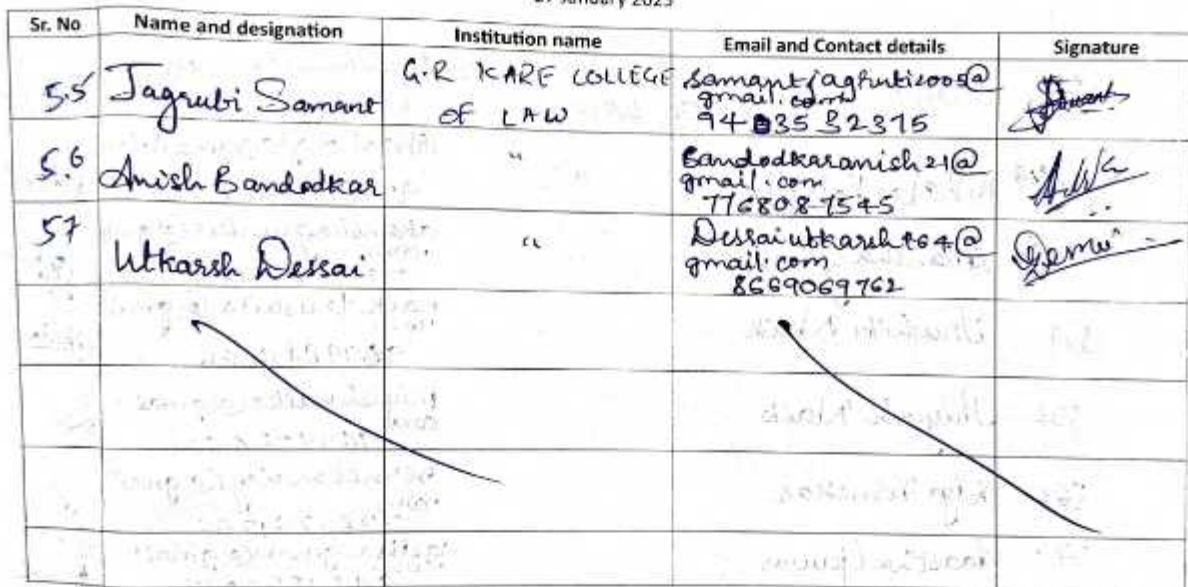 January 2025
Sr. No Name and designation Institution name Email and Contact details Signature
55 Jagrubi Samant G.R KARE COLLEGE OF LAW samantjaghruti2005@
gmail.com
94035 32315
56 Anish Bandodkar " Bandodkaranish21@
gmail.com
7768087545
57 Utkarsh Dessai " Dessaiutkarsh764@
gmail.com
8669069762